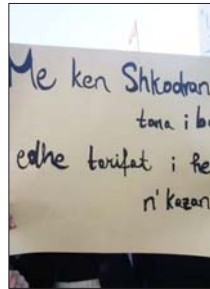 Me ken Shkodran
tana i b
edhe tarifat i
n' kazan